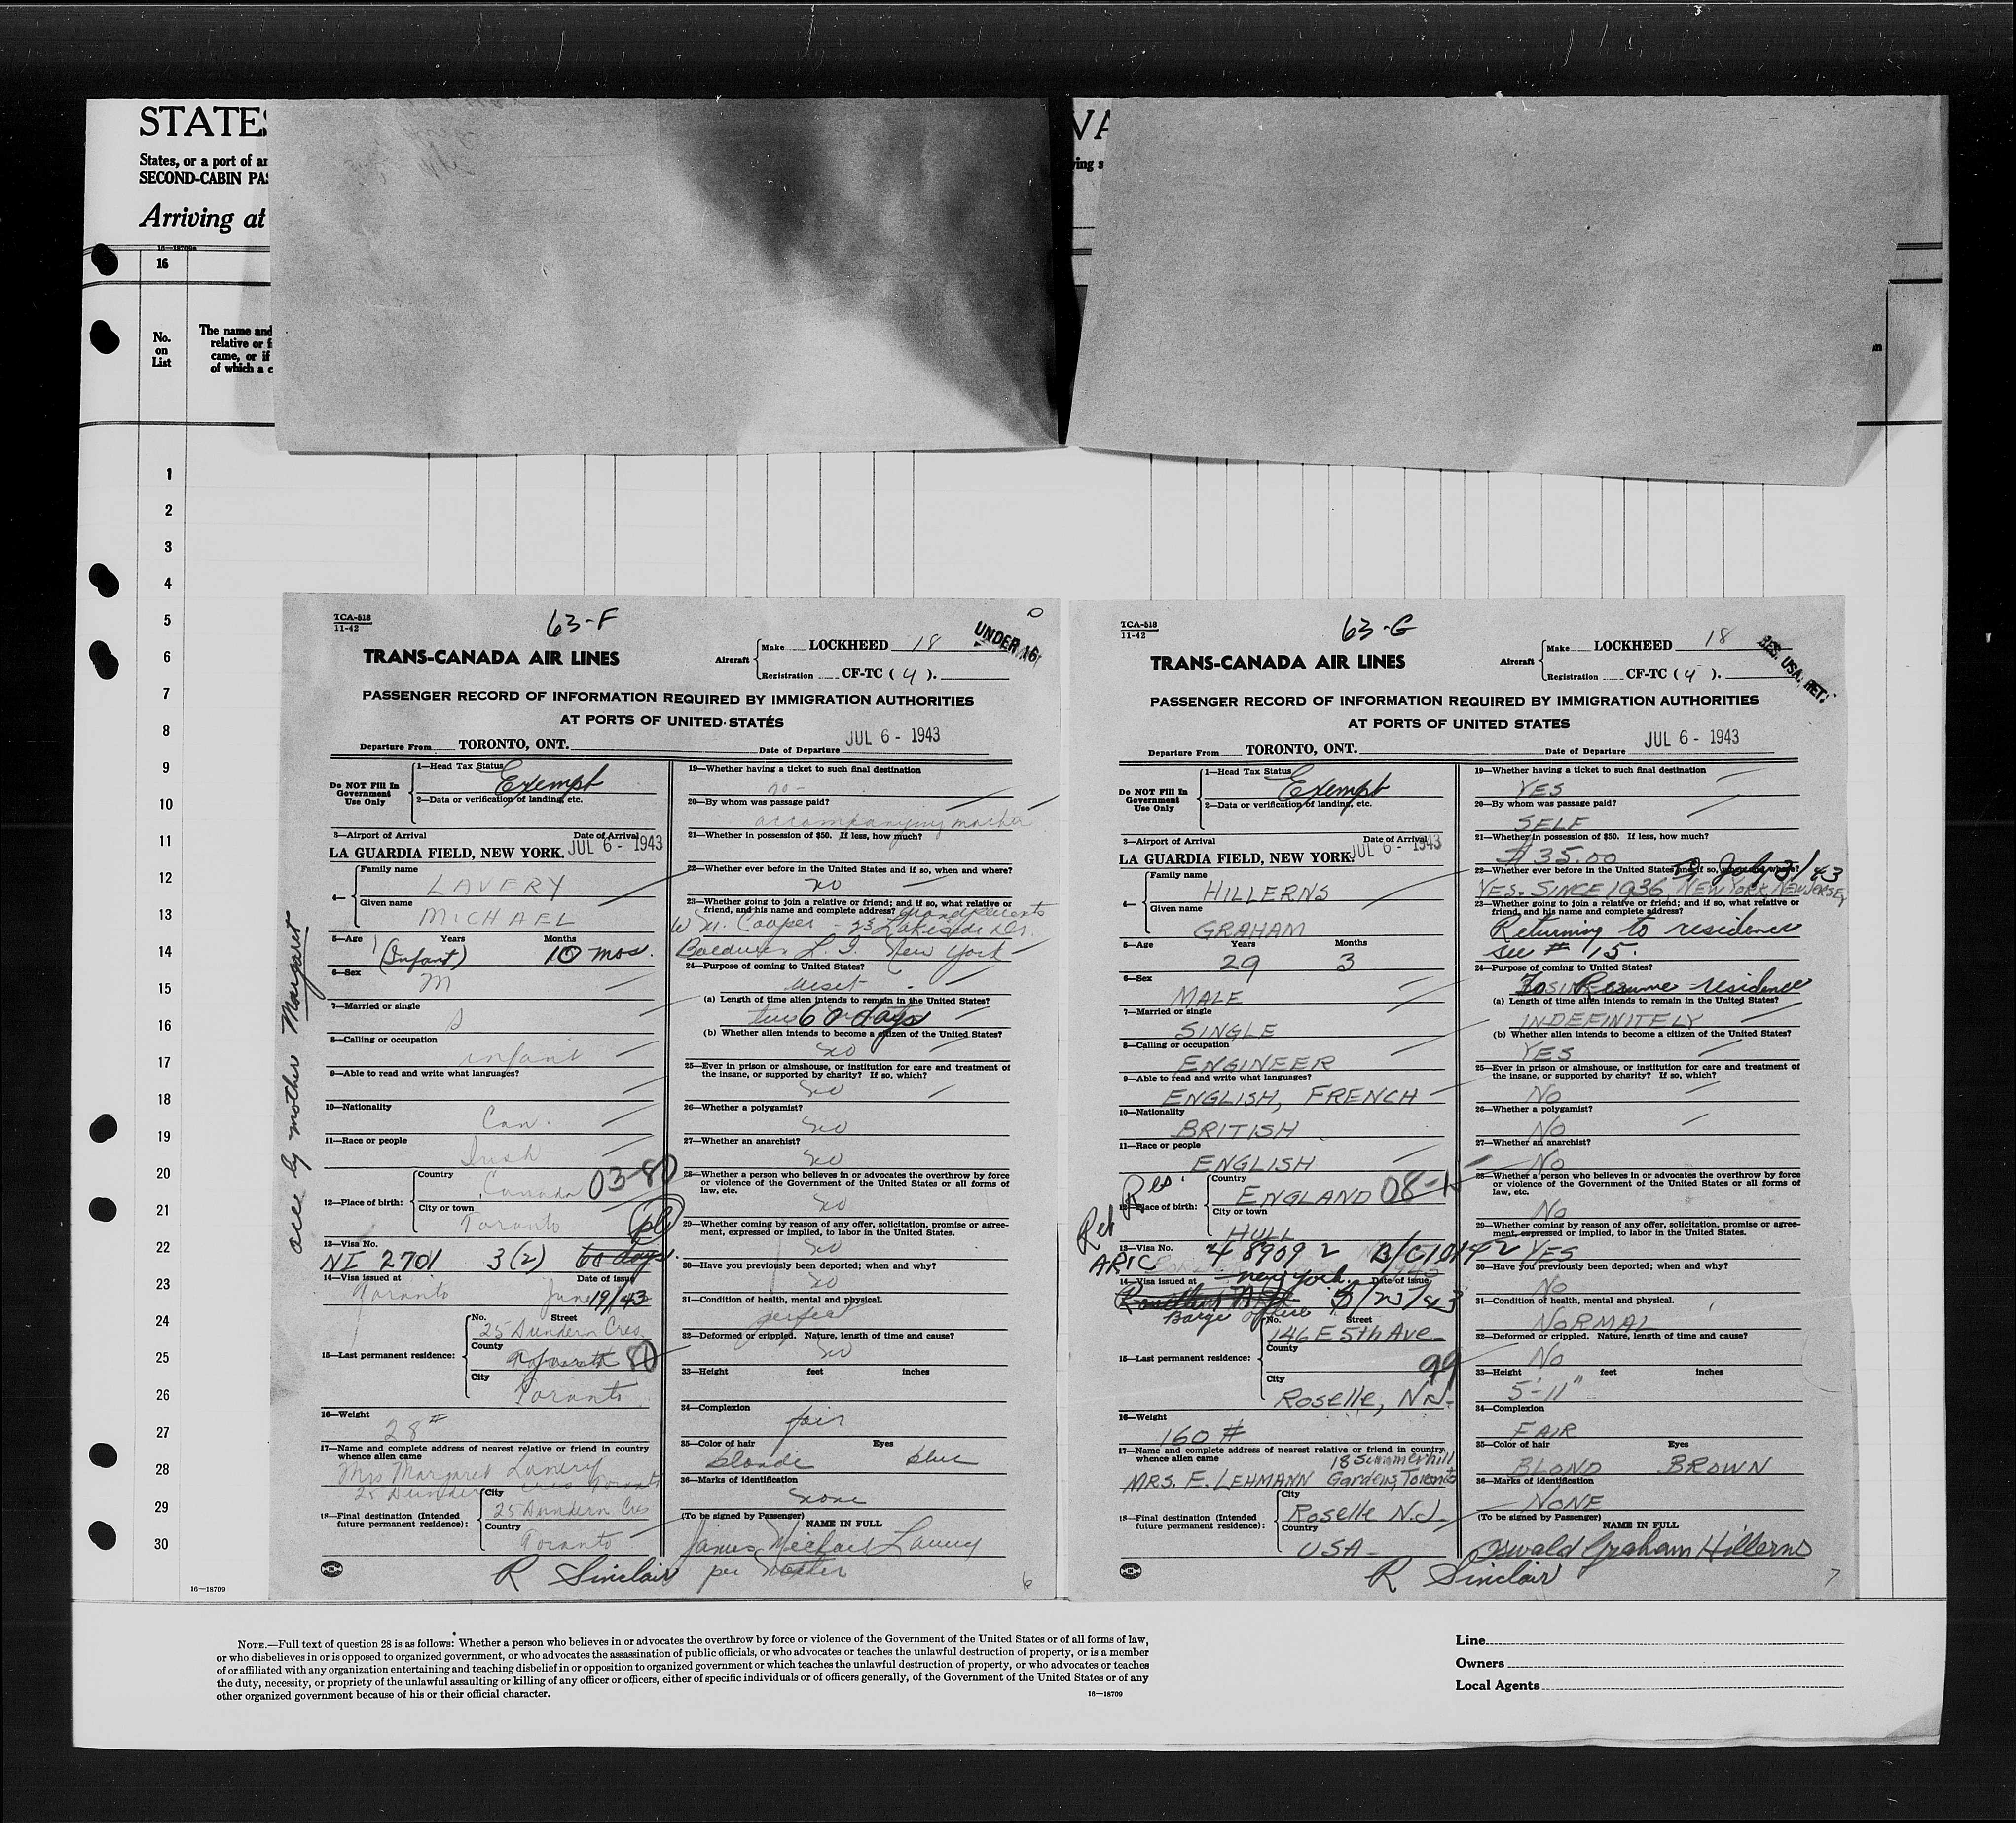 STATES
States, or a port of an
SECOND-CABIN PAS
Arriving at
16—18709a
16
No.
on
List
The name and
relative or f
came, or if
of which a c
VA
ying s
n
1
2
3
4
5
6
7
8
9
10
11
12
13
14
15
16
17
18
19
20
21
22
23
24
25
26
27
28
29
30
16—18709
acc. by mother Margaret
TCA-518
11-42
63-F
UNDER 16
TRANS-CANADA AIR LINES
Aircraft
Make LOCKHEED 18
Registration CF-TC ( 4 ).
PASSENGER RECORD OF INFORMATION REQUIRED BY IMMIGRATION AUTHORITIES
AT PORTS OF UNITED STATES
Departure From TORONTO, ONT. Date of Departure JUL 6 - 1943
Do NOT Fill In
Government
Use Only
1—Head Tax Status
Exempt
2—Data or verification of landing, etc.
3—Airport of Arrival Date of Arrival
LA GUARDIA FIELD, NEW YORK. JUL 6 - 1943
4— Family name
LAVERY
Given name
MICHAEL
5—Age Years Months
1 (Infant) 10 mos.
6—Sex
M
7—Married or single
S
8—Calling or occupation
infant
9—Able to read and write what languages?
10—Nationality
Can.
11—Race or people
Irish
12—Place of birth:
Country
Canada 03-80
City or town
Toronto
13—Visa No.
NI 2701 3(2) 60 days.
14—Visa issued at Date of issue
Toronto June 19/43
15—Last permanent residence:
No. Street
25 Dundern Cres.
County
City
Toronto
16—Weight
28#
17—Name and complete address of nearest relative or friend in country
whence alien came
Mrs Margaret Lavery
25 Dundern Cres Toronto
18—Final destination (Intended
future permanent residence):
City
25 Dundern Cres
Country
Toronto
R Sinclair
19—Whether having a ticket to such final destination
no-
20—By whom was passage paid?
accompanying mother
21—Whether in possession of $50. If less, how much?
22—Whether ever before in the United States and if so, when and where?
no
23—Whether going to join a relative or friend; and if so, what relative or
friend, and his name and complete address? Grandparents
W M. Cooper - 23 Lakeside Dr.
Baldwin L. I. New York
24—Purpose of coming to United States?
visit
(a) Length of time alien intends to remain in the United States?
60 days
(b) Whether alien intends to become a citizen of the United States?
no
25—Ever in prison or almshouse, or institution for care and treatment of
the insane, or supported by charity? If so, which?
No
26—Whether a polygamist?
No
27—Whether an anarchist?
No
28—Whether a person who believes in or advocates the overthrow by force
or violence of the Government of the United States or all forms of
law, etc.
no
29—Whether coming by reason of any offer, solicitation, promise or agree-
ment, expressed or implied, to labor in the United States.
No
30—Have you previously been deported; when and why?
no
31—Condition of health, mental and physical.
perfect
32—Deformed or crippled. Nature, length of time and cause?
No
33—Height feet inches
34—Complexion
fair
35—Color of hair Eyes
blonde blue
36—Marks of identification
none
(To be signed by Passenger) NAME IN FULL
James Michael Lavery
per Mother
6
TCA-518
11-42
63-G
RES. USA. RET.
TRANS-CANADA AIR LINES
Aircraft
Make LOCKHEED 18
Registration CF-TC ( 4 ).
PASSENGER RECORD OF INFORMATION REQUIRED BY IMMIGRATION AUTHORITIES
AT PORTS OF UNITED STATES
Departure From TORONTO, ONT. Date of Departure JUL 6 - 1943
Do NOT Fill In
Government
Use Only
1—Head Tax Status
Exempt
2—Data or verification of landing, etc.
3—Airport of Arrival Date of Arrival
LA GUARDIA FIELD, NEW YORK. JUL 6 - 1943
4— Family name
HILLERNS
Given name
GRAHAM
5—Age Years Months
29 3
6—Sex
MALE
7—Married or single
SINGLE
8—Calling or occupation
ENGINEER
9—Able to read and write what languages?
ENGLISH, FRENCH
10—Nationality
BRITISH
11—Race or people
ENGLISH
Ret Res.
12—Place of birth:
Country
ENGLAND 08-1
City or town
HULL
13—Visa No.
ARIC 48909 2 B/C10142
14—Visa issued at Date of issue
new york.
Barge office 5/25/43
15—Last permanent residence:
No. Street
146 E 5th Ave
County
99
City
Roselle, N.J.
16—Weight
160 #
17—Name and complete address of nearest relative or friend in country
whence alien came 18 Summerhill
MRS. E. LEHMANN Gardens, Toronto
18—Final destination (Intended
future permanent residence):
City
Roselle N.J.
Country
USA-
R Sinclair
19—Whether having a ticket to such final destination
YES
20—By whom was passage paid?
SELF
21—Whether in possession of $50. If less, how much?
$35.00
22—Whether ever before in the United States and if so, when and where?
July 3/43
YES. SINCE 1936 NEW YORK NEW JERSEY
23—Whether going to join a relative or friend; and if so, what relative or
friend, and his name and complete address?
Returning to residence
see # 15.
24—Purpose of coming to United States?
To Resume residence
(a) Length of time alien intends to remain in the United States?
INDEFINITELY
(b) Whether alien intends to become a citizen of the United States?
YES
25—Ever in prison or almshouse, or institution for care and treatment of
the insane, or supported by charity? If so, which?
No
26—Whether a polygamist?
No
27—Whether an anarchist?
No
28—Whether a person who believes in or advocates the overthrow by force
or violence of the Government of the United States or all forms of
law, etc.
No
29—Whether coming by reason of any offer, solicitation, promise or agree-
ment, expressed or implied, to labor in the United States.
YES
30—Have you previously been deported; when and why?
No
31—Condition of health, mental and physical.
NORMAL
32—Deformed or crippled. Nature, length of time and cause?
No
33—Height feet inches
5'-11"
34—Complexion
FAIR
35—Color of hair Eyes
BLOND BROWN
36—Marks of identification
NONE
(To be signed by Passenger) NAME IN FULL
Oswald Graham Hillerns
7
NOTE.—Full text of question 28 is as follows: Whether a person who believes in or advocates the overthrow by force or violence of the Government of the United States or of all forms of law,
or who disbelieves in or is opposed to organized government, or who advocates the assassination of public officials, or who advocates or teaches the unlawful destruction of property, or is a member
of or affiliated with any organization entertaining and teaching disbelief in or opposition to organized government or which teaches the unlawful destruction of property, or who advocates or teaches
the duty, necessity, or propriety of the unlawful assaulting or killing of any officer or officers, either of specific individuals or of officers generally, of the Government of the United States or of any
other organized government because of his or their official character.
16—18709
Line
Owners
Local Agents